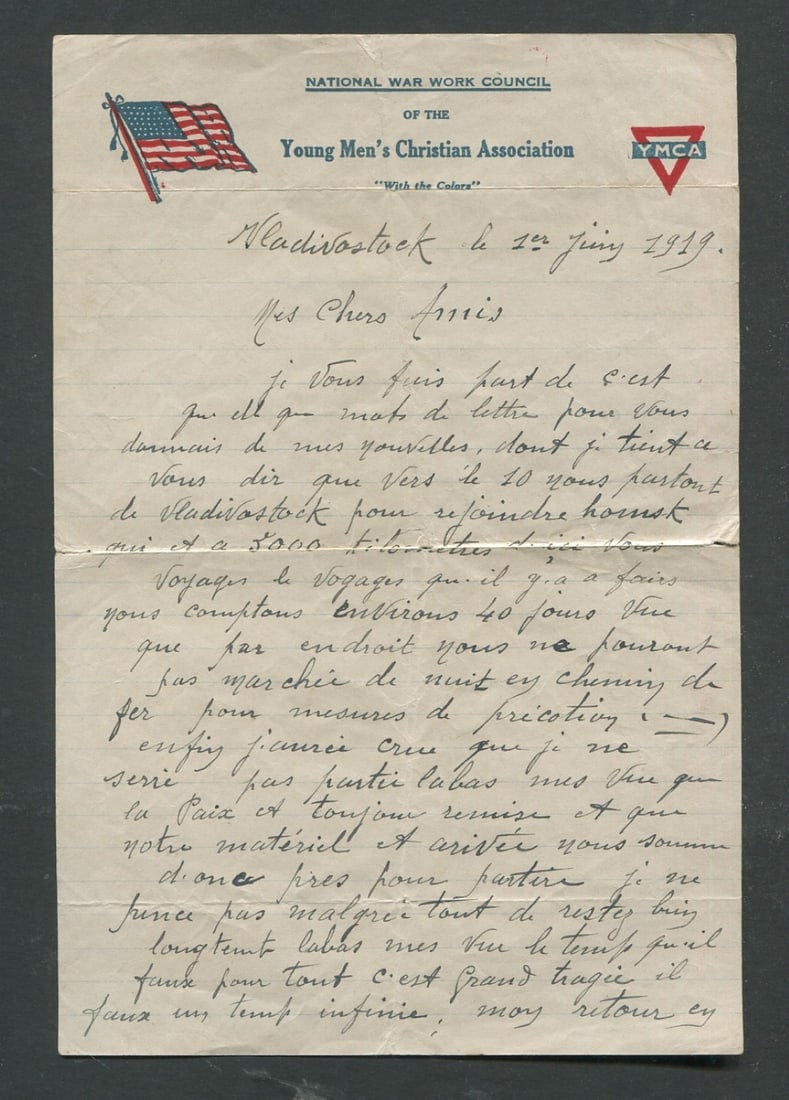 NATIONAL WAR WORK COUNCIL
OF THE
Young Men's Christian Association
"With the Colors"
YMCA
Vladivostock le 1er Juin 1919.
Mes Chers Amis
je vous fais part de c'est
que elle que mots de lettre pour vous
donnais de mes nouvelles, dont je tient a
vous dir que vers le 10 nous partont
de Vladivostock pour rejoindre homsk
qui et a 5000 kilometres d'ici vous
voyages le vogages qu'il y a a fairs
nous comptons environs 40 jours vue
que par endroit nous ne pouront
pas marchée de nuit en chemin de
fer pour mesures de précotion
enfin j'aurée crue que je ne
serrè pas partie labas mes vue que
la Paix et toujour remise et que
notre matériel et arivée nous somme
d'onc pres pour partire je ne
pence pas malgrée tout de restez bien
longtemt labas mes vue le temp qu'il
faux pour tout c'est Grand tragée il
faux un temp infinie, mon retour en